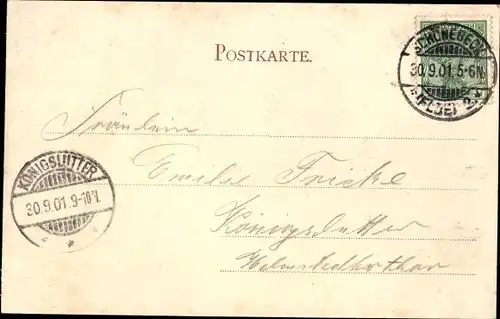 POSTKARTE.
SCHÖNEBECK
30.9.01.5-6N.
*(ELBE) 2*
Fräulein
KÖNIGSLUTTER
30.9.01.9-10N.
Emilie Fricke
Königslutter
Helmstedterthor